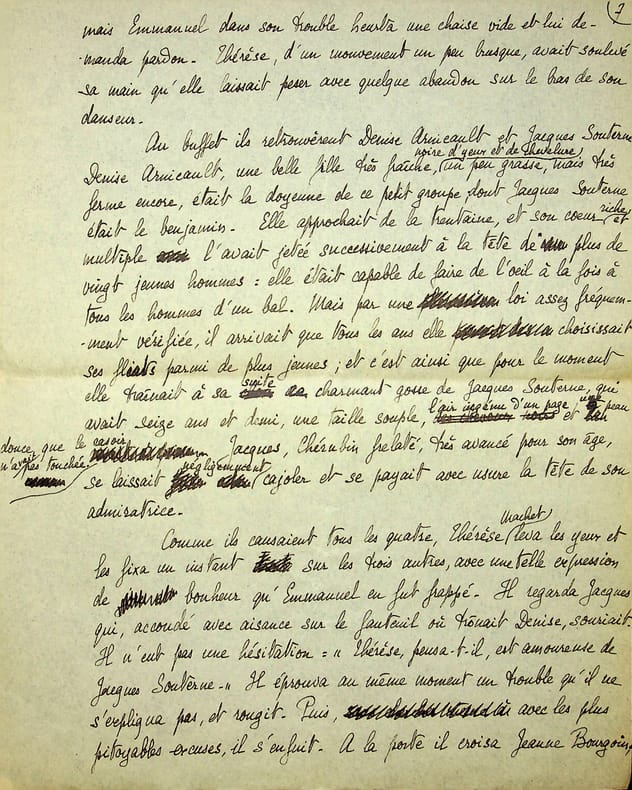 7
mais Emmanuel dans son trouble heurta une chaise vide et lui de-
-manda pardon. Thérèse, d'un mouvement un peu brusque, avait soulevé
sa main qu'elle laissait peser avec quelque abandon sur le bras de son
danseur.
Au buffet ils retrouvèrent Denise Arnicault et Jacques Souterne
noire d'yeux et de chevelure
Denise Arnicault, une belle fille très fraîche, un peu grasse, mais très
ferme encore, était la doyenne de ce petit groupe dont Jacques Souterne
était le benjamin. Elle approchait de la trentaine, et son coeur riche et
multiple l'avait jetée successivement à la tête de plus de
vingt jeunes hommes : elle était capable de faire de l'oeil à la fois à
tous les hommes d'un bal. Mais par une loi assez fréquem-
-ment vérifiée, il arrivait que tous les ans elle choisissait
ses flirts parmi de plus jeunes ; et c'est ainsi que pour le moment
elle traînait à sa suite charmant gosse de Jacques Souterne, qui
avait seize ans et demi, une taille souple, l'air ingénu d'un page et une peau
douce, que le rasoir
n'a pas touchée. Jacques, Chérubin frelaté, très avancé pour son âge,
se laissait négligemment cajoler et se payait avec usure la tête de son
admiratrice.
Comme ils causaient tous les quatre, Thérèse Machet leva les yeux et
les fixa un instant sur les trois autres, avec une telle expression
de bonheur qu'Emmanuel en fut frappé. Il regarda Jacques
qui, accoudé avec aisance sur le fauteuil où trônait Denise, souriait.
Il n'eut pas une hésitation : "Thérèse, pensa-t-il, est amoureuse de
Jacques Souterne." Il éprouva au même moment un trouble qu'il ne
s'expliqua pas, et rougit. Puis, avec les plus
pitoyables excuses, il s'enfuit. A la porte il croisa Jeanne Bourgoin,